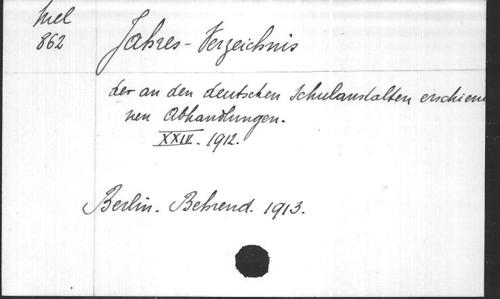 Mel
862
Jahres-Verzeichnis
der an den deutschen Schulanstalten erschiene
nen Abhandlungen.
XXIV. 1912.
Berlin. Behrend. 1913.